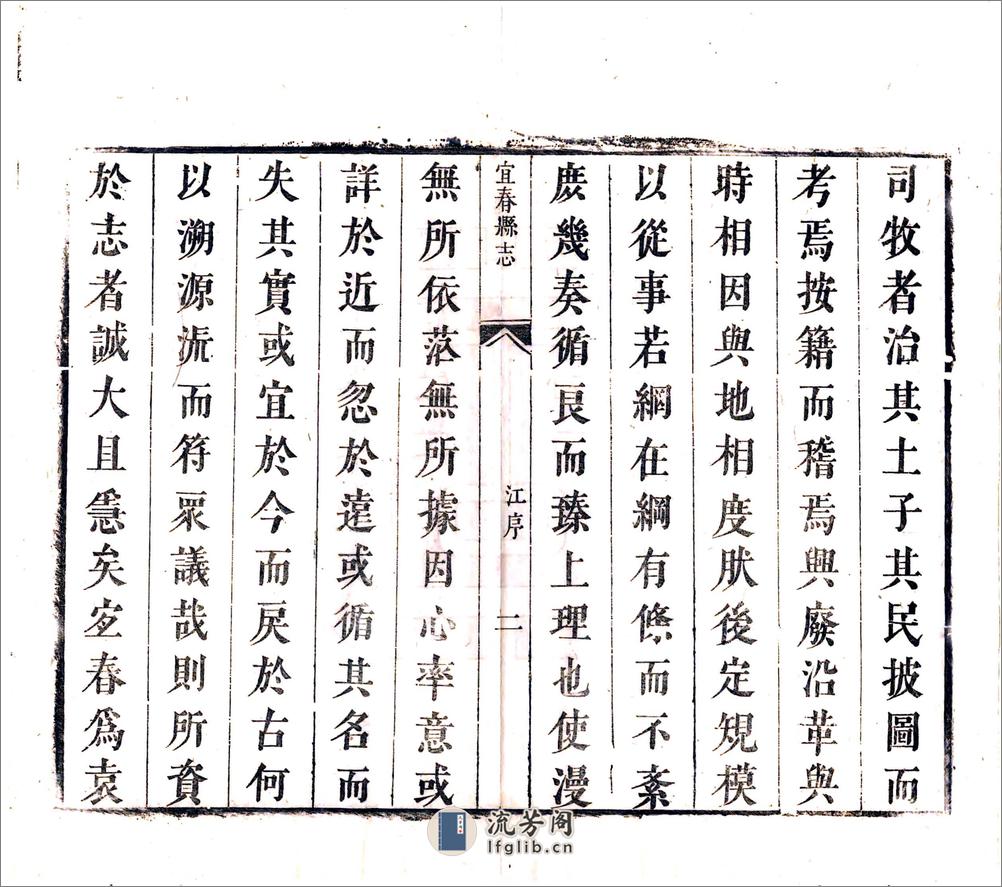 司牧者治其土子其民披圖而
考焉按籍而稽焉興廢沿革與
時相因與地相度肰後定規模
以從事若網在綱有條而不紊
庻幾奏循良而臻上理也使漫
宜春縣志
江序
二
無所依落無所據因心率意或
詳於近而忽於遠或循其名而
失其實或宜於今而戻於古何
以溯源流而符眾議哉則所資
於志者誠大且急矣宜春爲袁
流芳阁
lfglib.cn